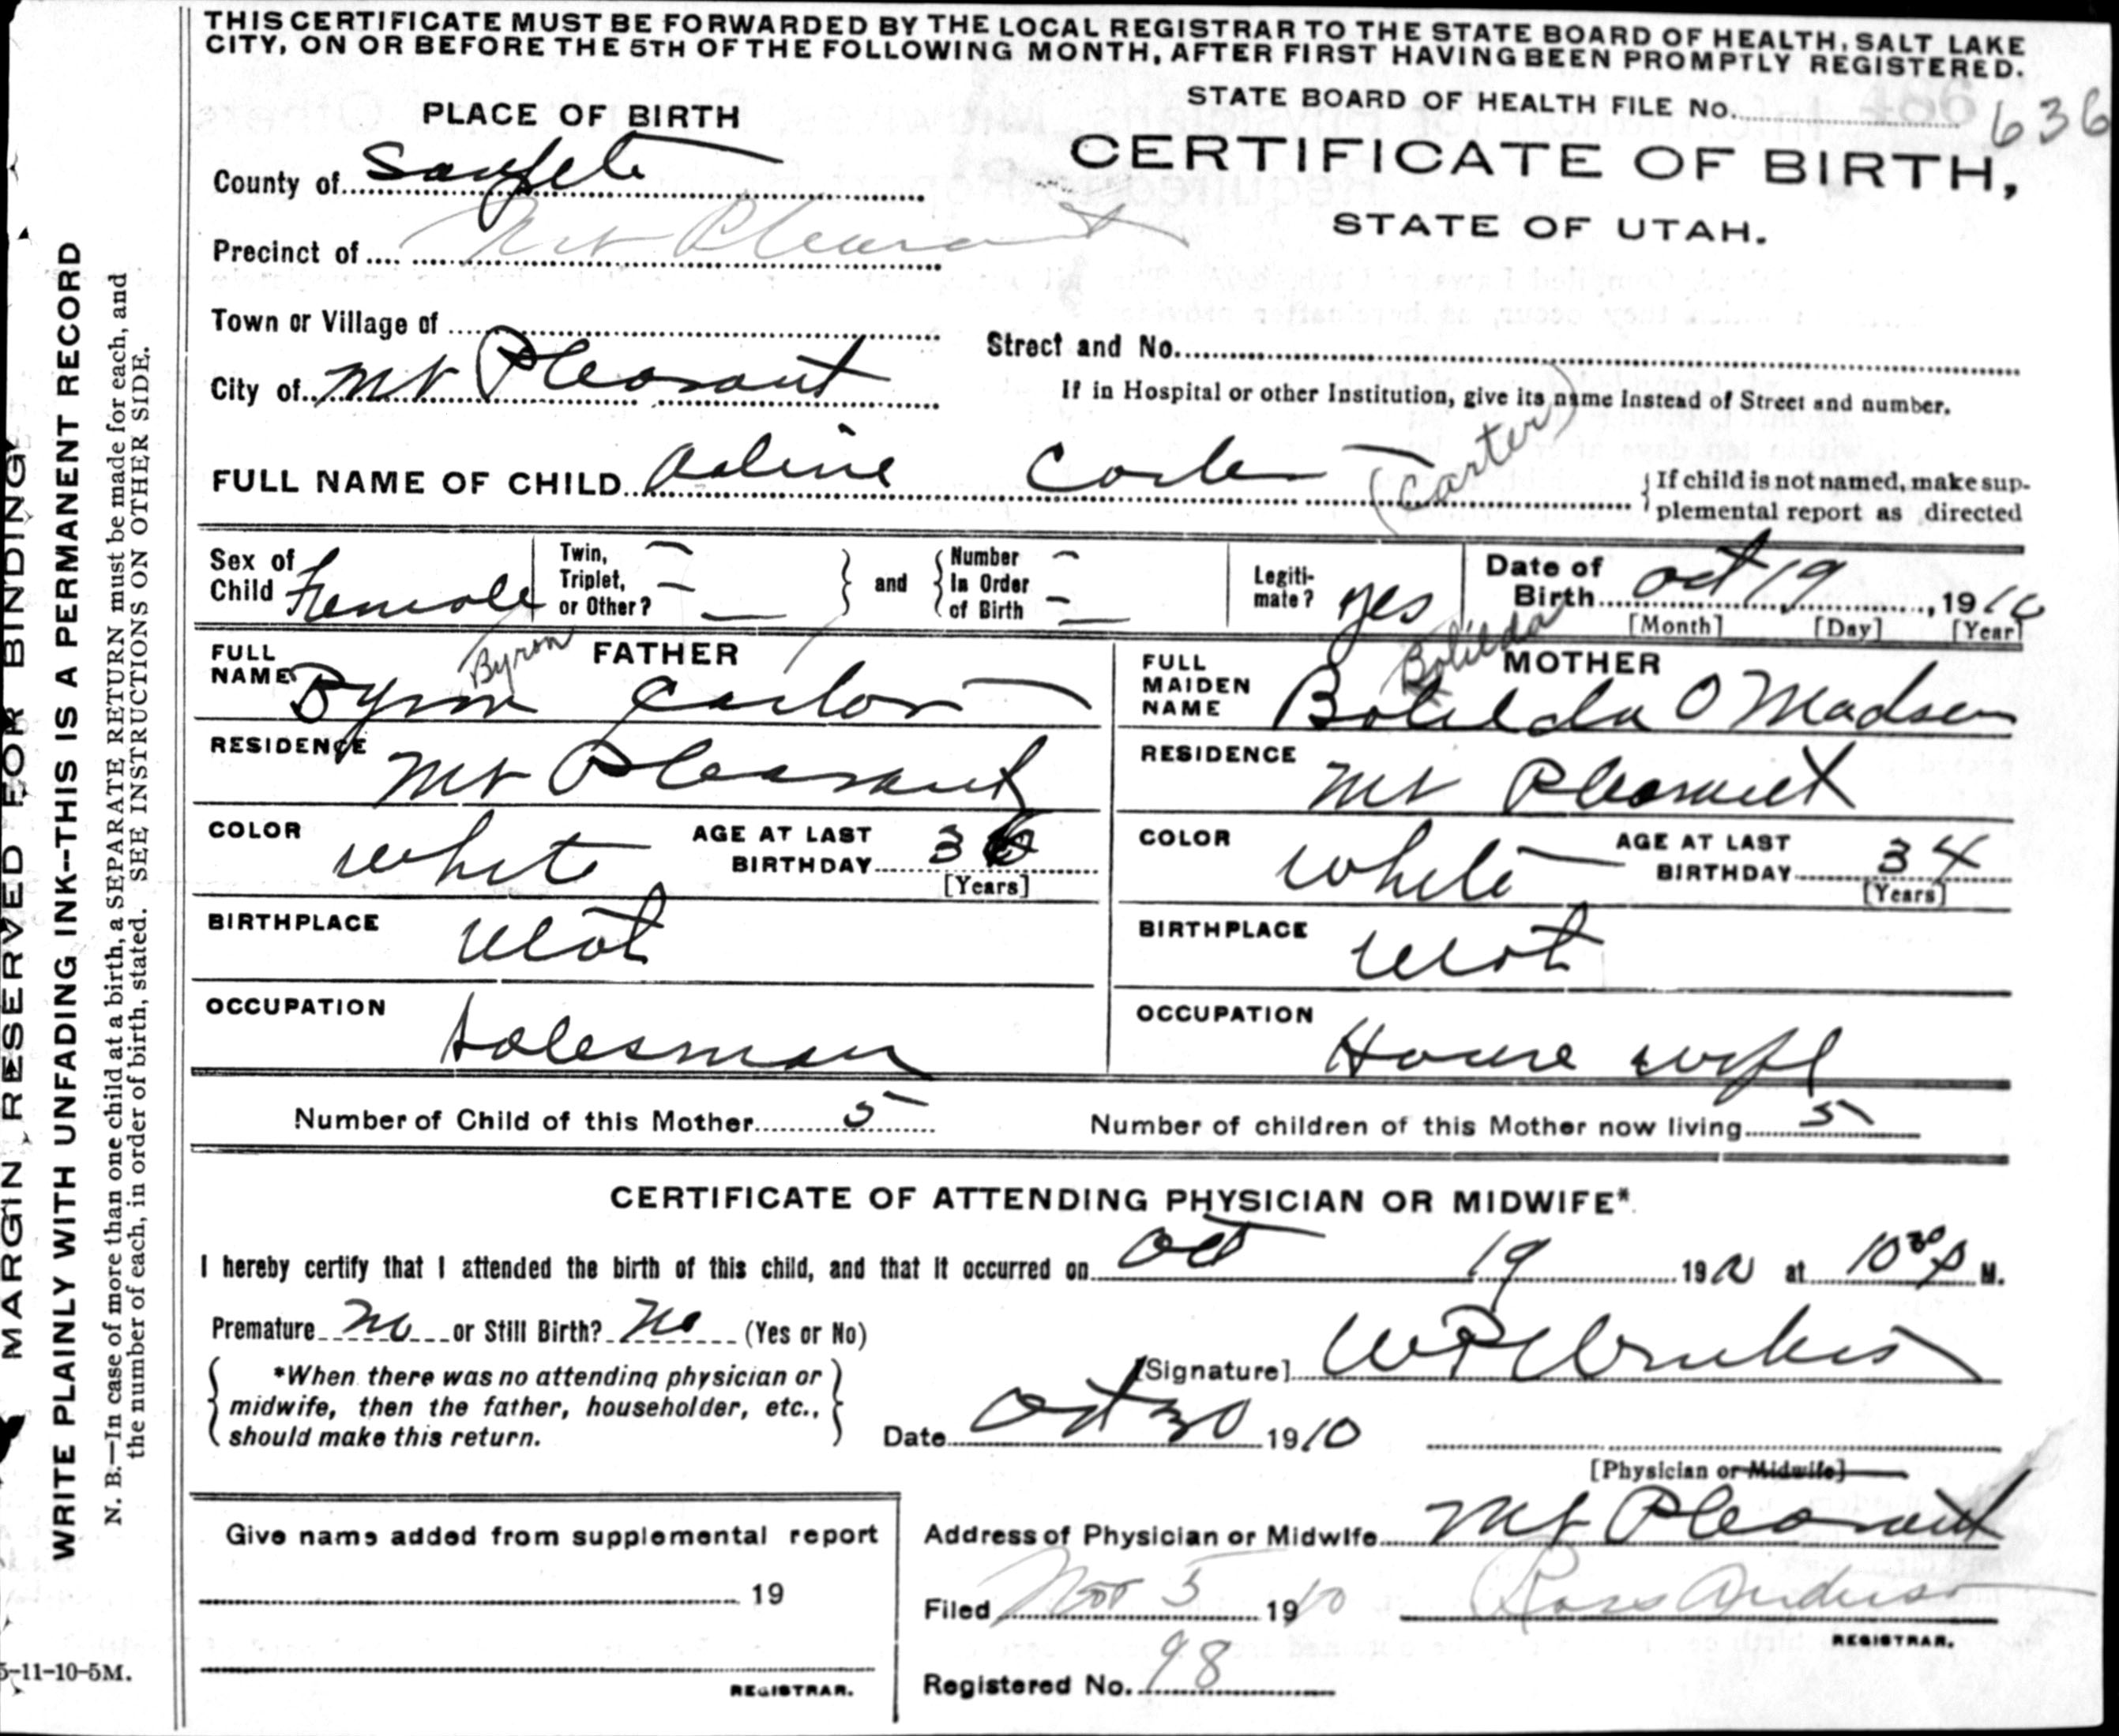 THIS CERTIFICATE MUST BE FORWARDED BY THE LOCAL REGISTRAR TO THE STATE BOARD OF HEALTH, SALT LAKE
CITY, ON OR BEFORE THE 5TH OF THE FOLLOWING MONTH, AFTER FIRST HAVING BEEN PROMPTLY REGISTERED.
MARGIN RESERVED FOR BINDING
WRITE PLAINLY WITH UNFADING INK--THIS IS A PERMANENT RECORD
N. B.—In case of more than one child at a birth, a SEPARATE RETURN must be made for each, and
the number of each, in order of birth, stated. SEE INSTRUCTIONS ON OTHER SIDE.
STATE BOARD OF HEALTH FILE No. 636
PLACE OF BIRTH
CERTIFICATE OF BIRTH,
STATE OF UTAH.
County of Sanpete
Precinct of Mt Pleasant
Town or Village of
Street and No.
City of Mt Pleasant
If in Hospital or other Institution, give its name instead of Street and number.
FULL NAME OF CHILD Carter (Carter)
If child is not named, make sup-
plemental report as directed
Sex of Child Female
Twin, Triplet, or Other? and Number In Order of Birth
Legiti-mate? yes
Date of Birth Oct 19, 1910
[Month] [Day] [Year]
FATHER
FULL NAME Byron Carter
Byron
RESIDENCE Mt Pleasant
COLOR White AGE AT LAST BIRTHDAY 36
[Years]
BIRTHPLACE Utah
OCCUPATION Salesman
MOTHER
FULL MAIDEN NAME Botilda O Madsen
Botilda
RESIDENCE Mt Pleasant
COLOR White AGE AT LAST BIRTHDAY 34
[Years]
BIRTHPLACE Utah
OCCUPATION House wife
Number of Child of this Mother 5 Number of children of this Mother now living 5
CERTIFICATE OF ATTENDING PHYSICIAN OR MIDWIFE*
I hereby certify that I attended the birth of this child, and that it occurred on Oct 19 1910 at 10 30 P M.
Premature No or Still Birth? No (Yes or No)
*When there was no attending physician or
midwife, then the father, householder, etc.,
should make this return.
[Signature]
Date Oct 30 1910
[Physician or Midwife]
Give name added from supplemental report
19
REGISTRAR.
Address of Physician or Midwife Mt Pleasant
Filed Nov 5 1910
REGISTRAR.
Registered No. 98
5-11-10-5M.